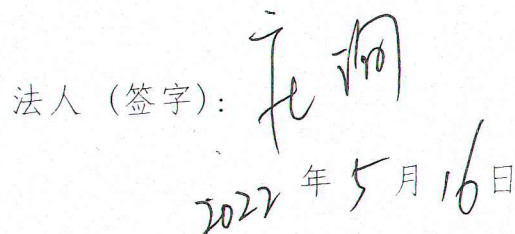 法人（签字）：
2022年5月16日